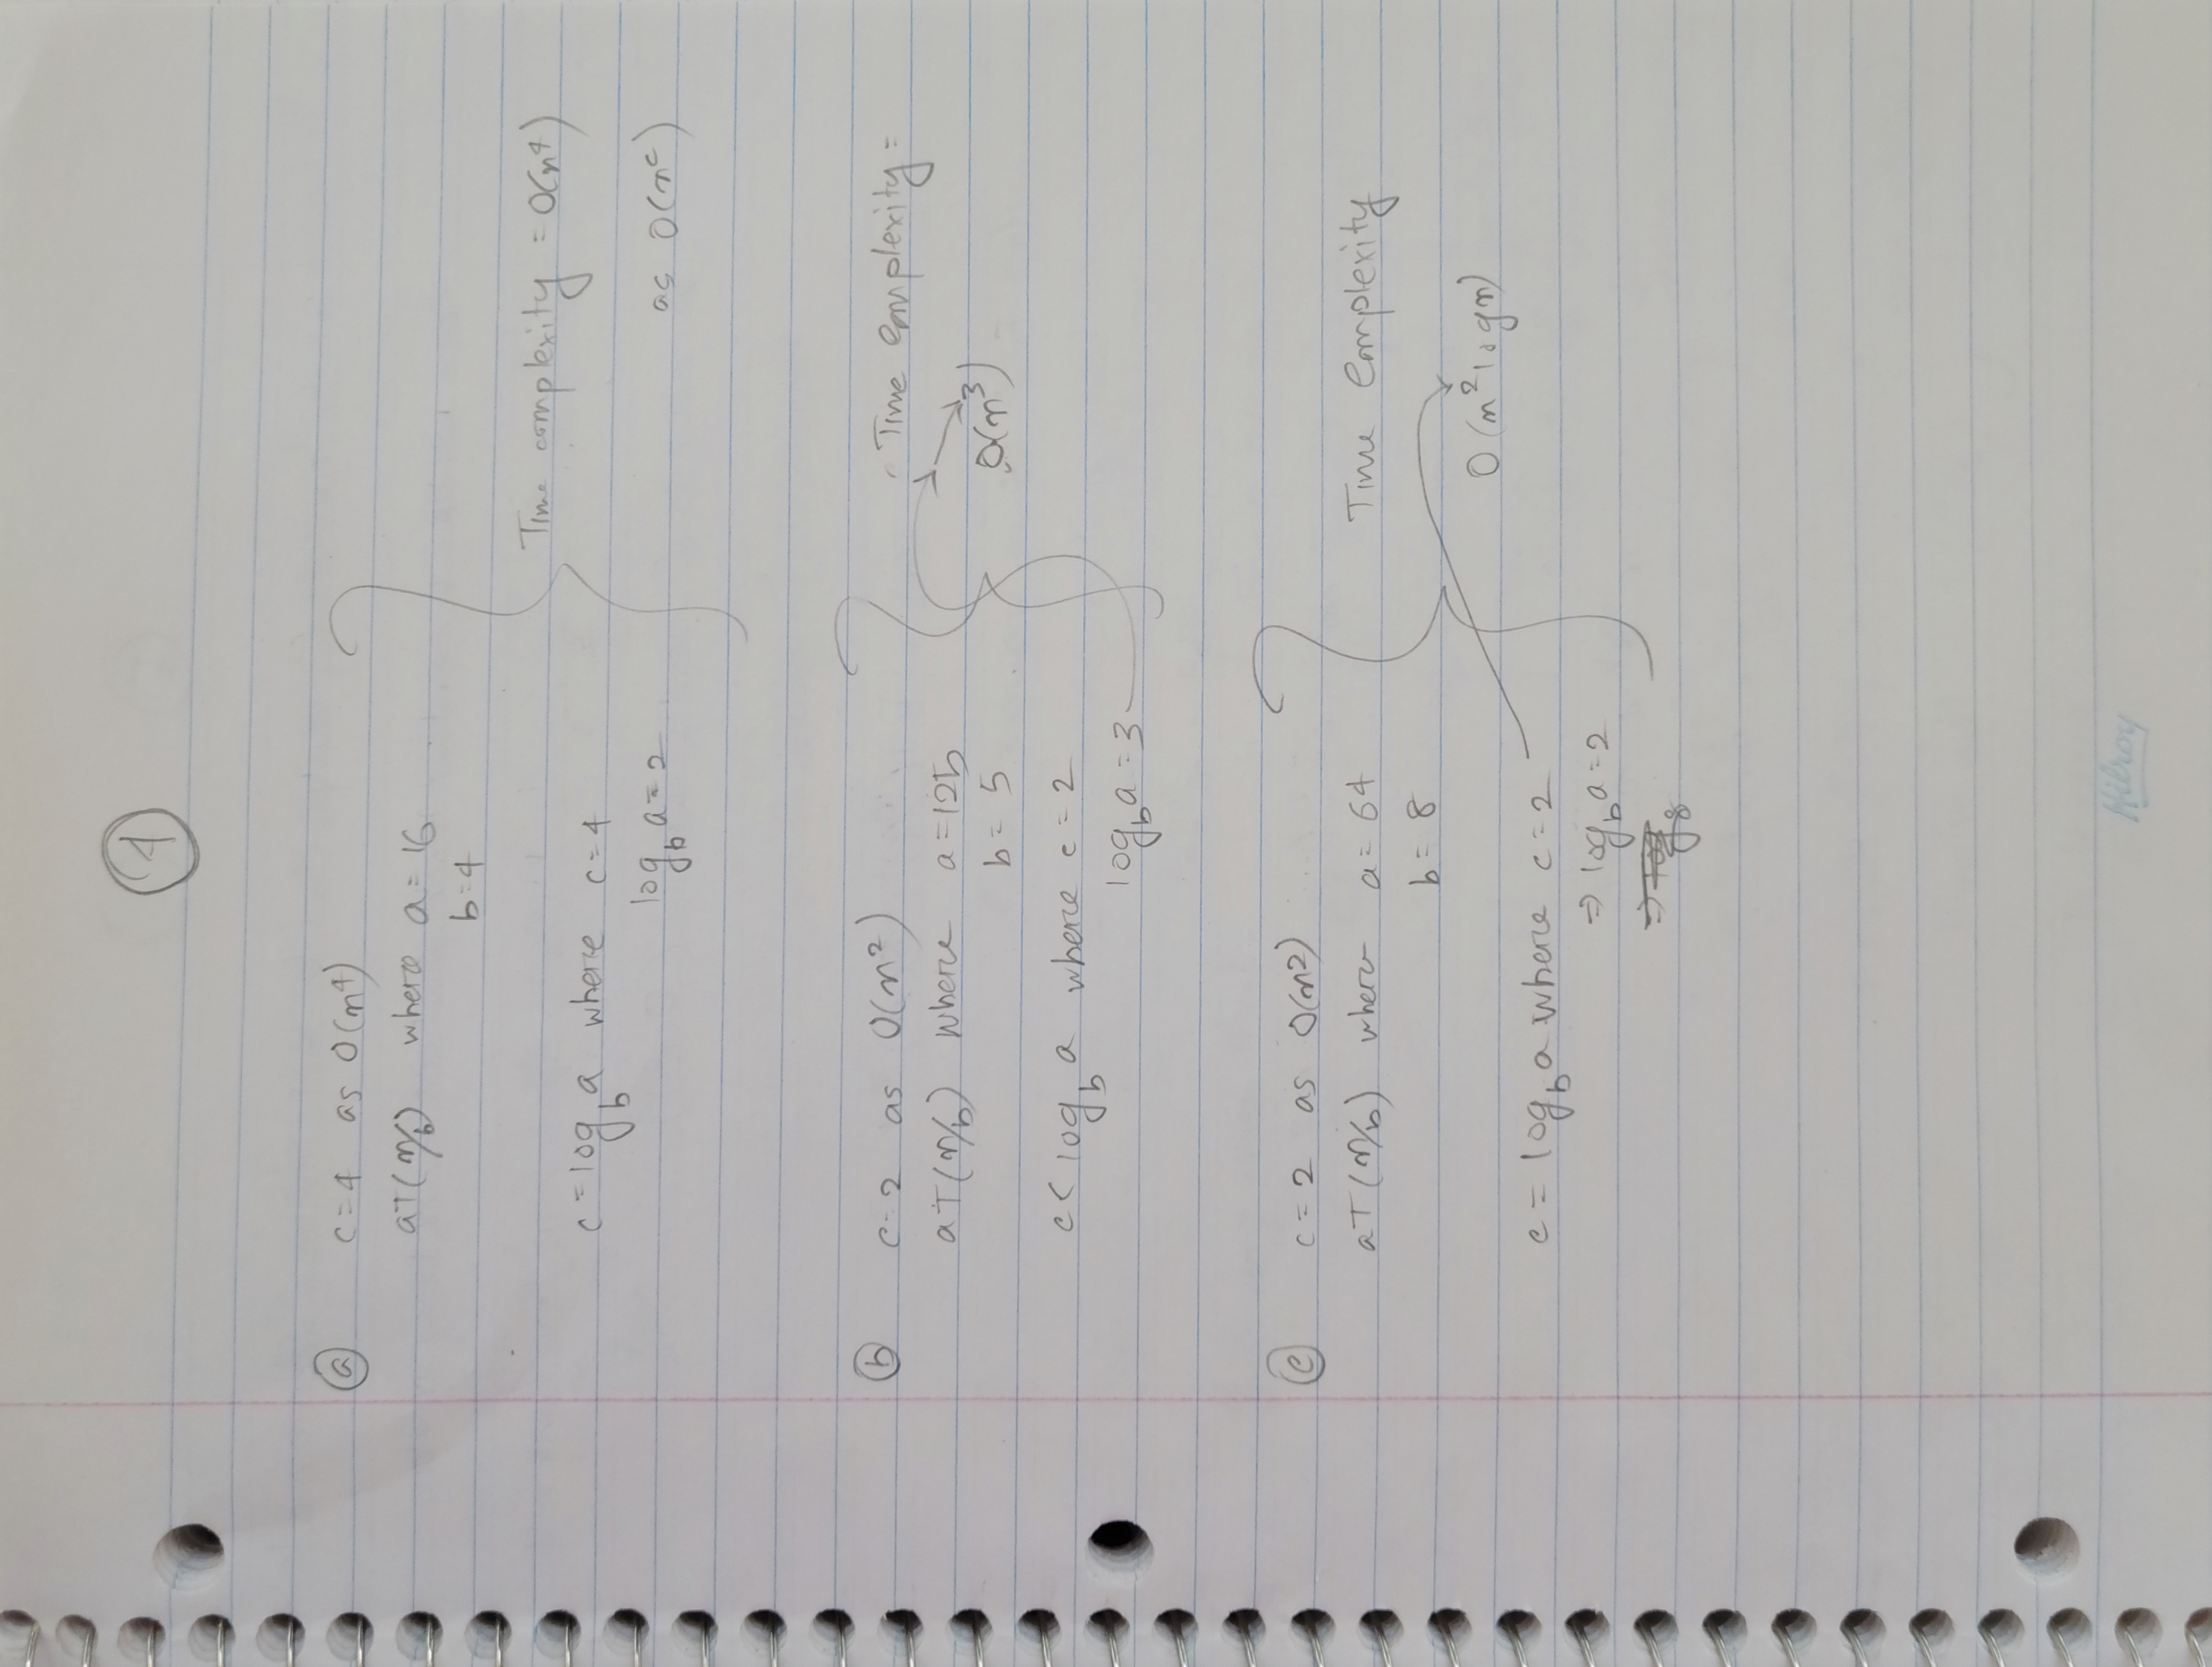 1
a c=4 as O(n⁴)
aT(n/b) where a=16
b=4
c=log_b a where c=4
log_b a=2
Time complexity = O(n⁴)
as O(n^c)
b c=2 as O(n²)
aT(n/b) where a=125
b=5
c< log_b a where c=2
log_b a=3
Time complexity =
O(n³)
c c=2 as O(n2)
aT(n/b) where a=64
b=8
c=log_b a where c=2
⇒ log_b a=2
⇒ log_8
Time complexity
O(n² logn)
Hilroy